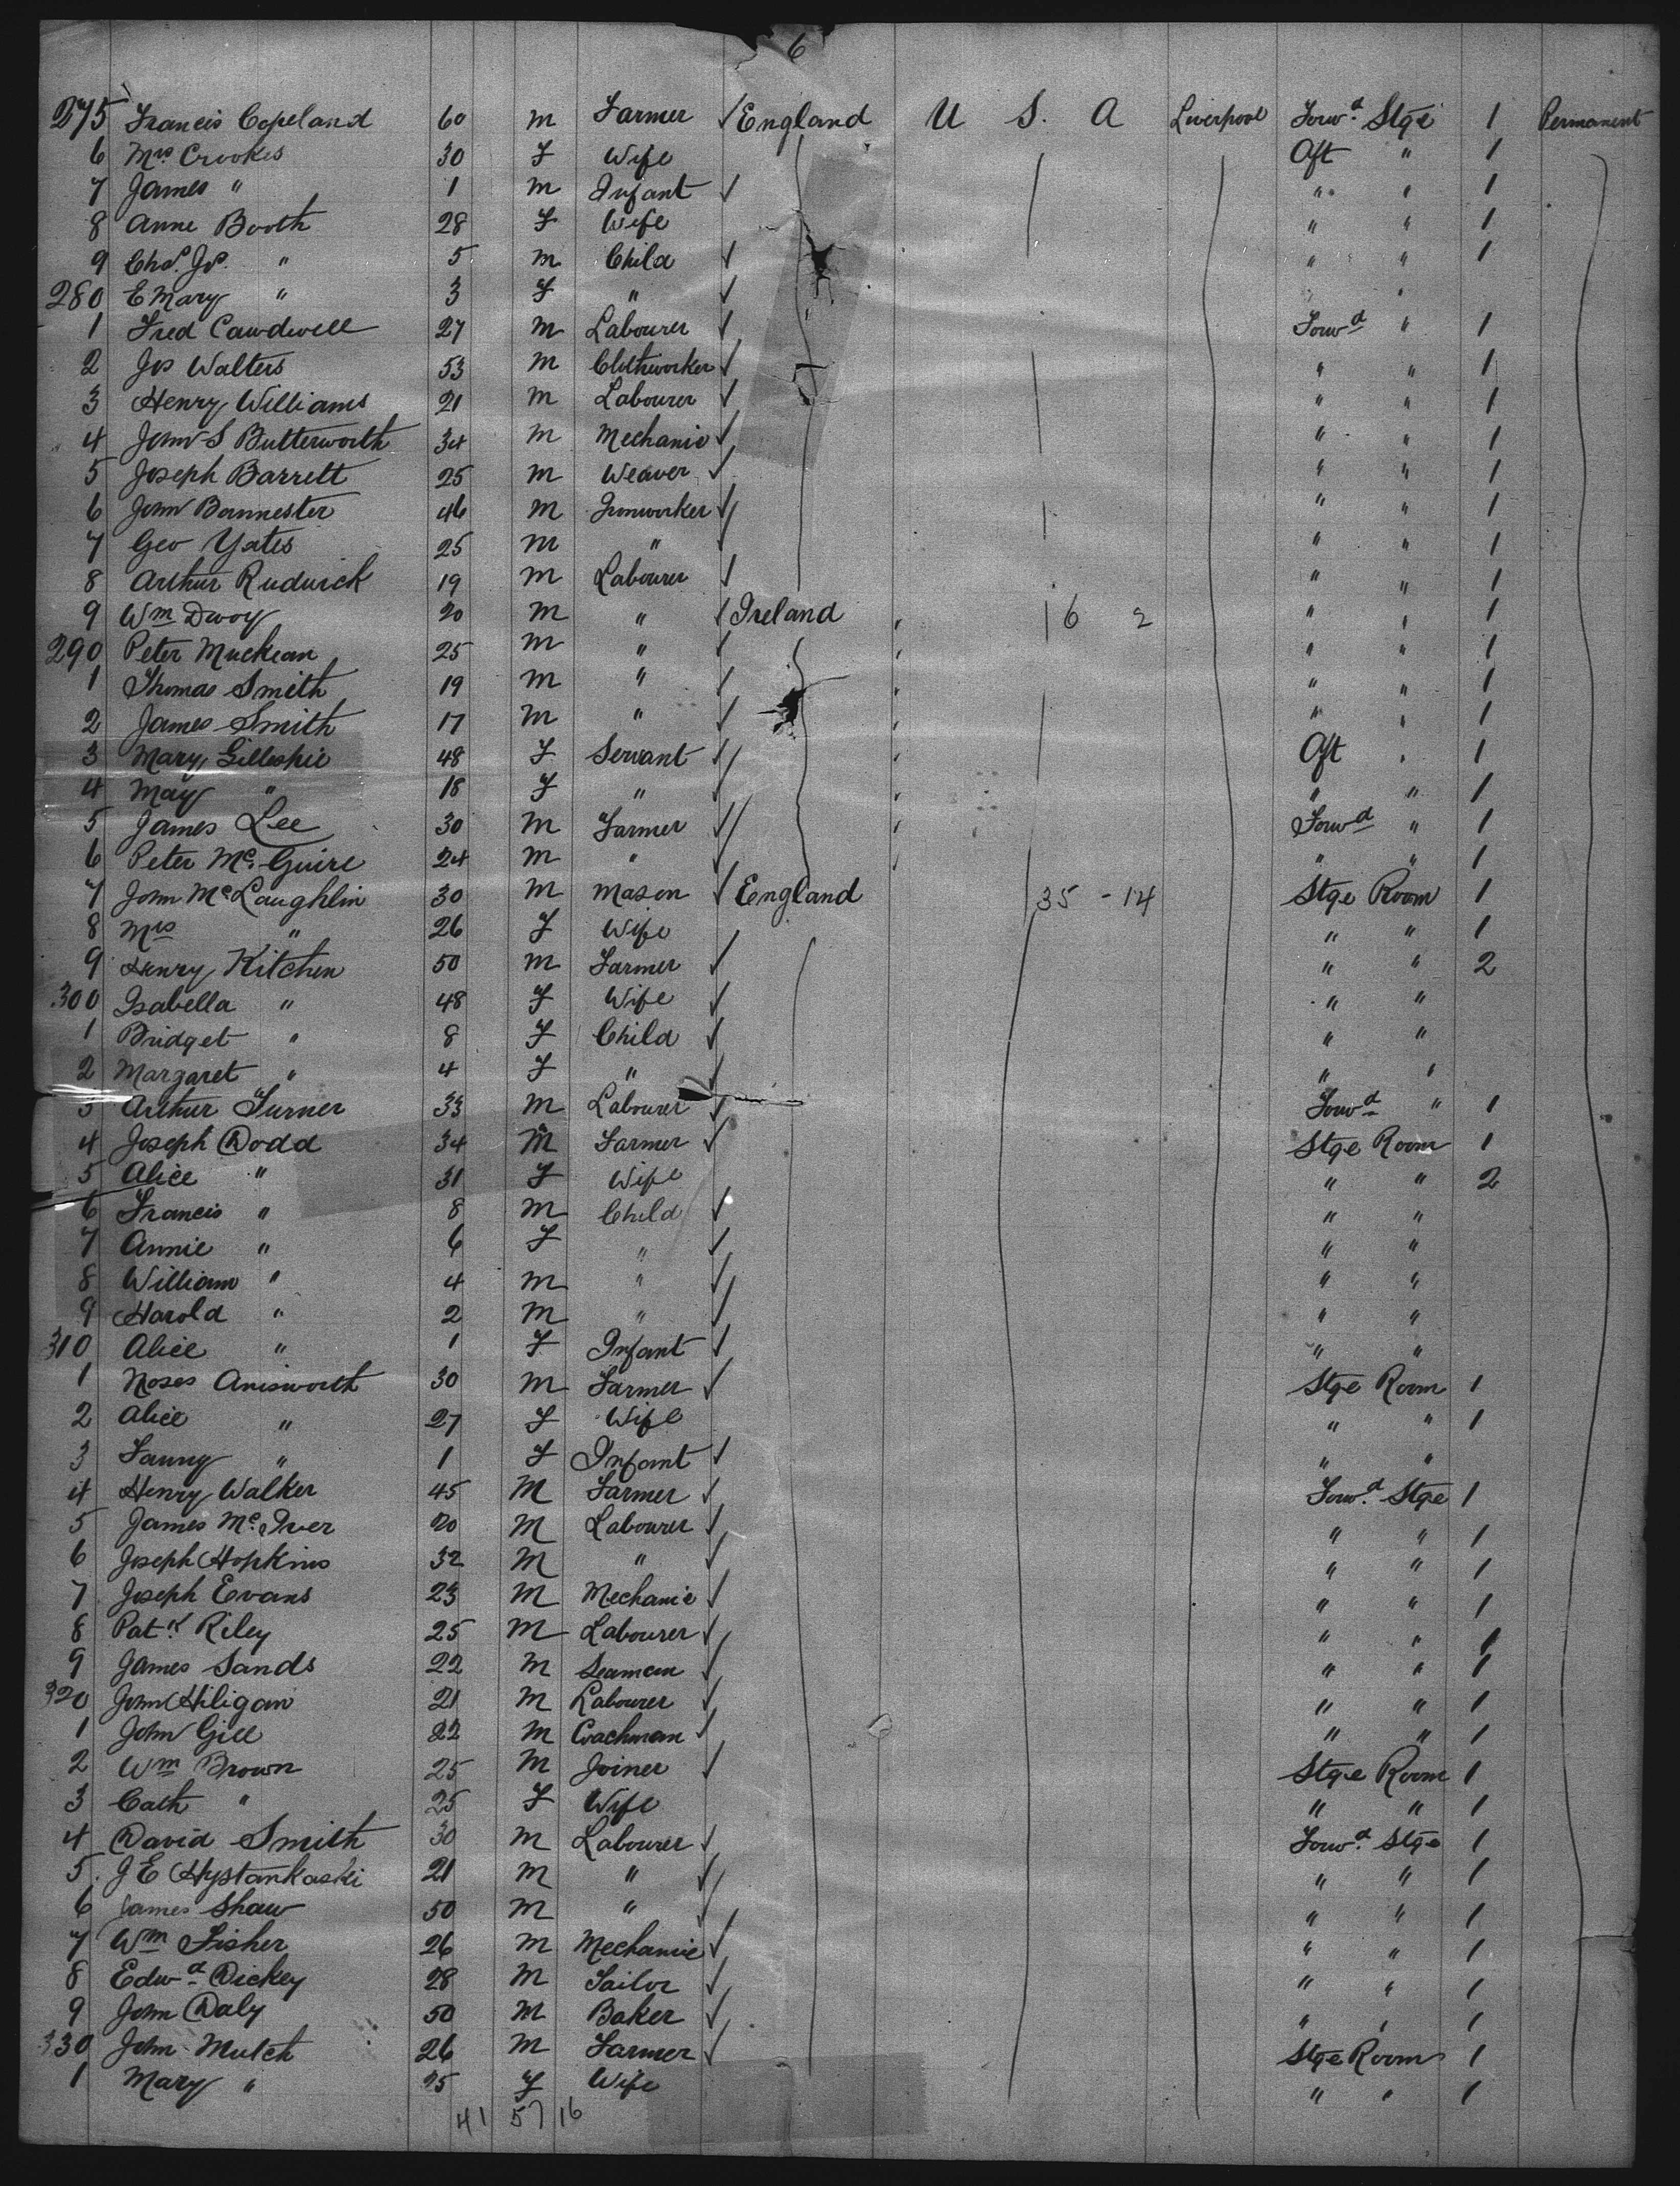 6
275 Francis Copeland 60 m Farmer ✓ England U S. A Liverpool Forwd. Stge 1 Permanent
6 Mrs Crookes 30 F Wife Aft " 1
7 James " 1 m Infant ✓ " " 1
8 Anne Booth 28 F Wife " " 1
9 Chas. Js. " 5 m Child ✓ " " 1
280 E Mary " 3 F " ✓ " "
1 Fred Cawdwell 27 m Labourer ✓ Forwd " 1
2 Jos Walters 53 m Clothworker ✓ " " 1
3 Henry Williams 21 m Labourer ✓ " " 1
4 John S Butterworth 34 m Mechanic ✓ " " 1
5 Joseph Barrett 25 m Weaver ✓ " " 1
6 John Bannester 46 m Ironworker ✓ " " 1
7 Geo Yates 25 m " ✓ " " 1
8 Arthur Rudwick 19 m Labourer ✓ " " 1
9 Wm Dwoy 20 m " ✓ Ireland " 16 2 " " 1
290 Peter Muckean 25 m " ✓ " " " 1
1 Thomas Smith 19 m " ✓ " " " 1
2 James Smith 17 m " ✓ " " " 1
3 Mary Gillespie 48 F Servant ✓ " Aft " 1
4 May " 18 F " ✓ " " " 1
5 James Lee 30 m Farmer ✓ " Forwd " 1
6 Peter Mc Guire 24 m " ✓ " " " 1
7 John McLaughlin 30 m Mason ✓ England 35 - 14 Stge Room 1
8 Mrs " 26 F Wife " " 1
9 Henry Kitchen 50 m Farmer ✓ " " 2
300 Isabella " 48 F Wife ✓ " "
1 Bridget " 8 F Child ✓ " "
2 Margaret " 4 F " ✓ " "
3 Arthur Turner 33 m Labourer ✓ Forwd " 1
4 Joseph Dodd 34 m Farmer ✓ Stge Room 1
5 Alice " 31 F Wife " " 2
6 Francis " 8 m Child ✓ " "
7 Annie " 6 F " ✓ " "
8 William " 4 m " ✓ " "
9 Harold " 2 m " ✓ " "
310 Alice " 1 F Infant ✓ " "
1 Moses Anisworth 30 m Farmer ✓ Stge Room 1
2 Alice " 27 F Wife " " 1
3 Fanny " 1 F Infant ✓ " "
4 Henry Walker 45 M Farmer ✓ Forwd. Stge 1
5 James Mc Iver 20 M Labourer ✓ " " 1
6 Joseph Hopkins 32 M " ✓ " " 1
7 Joseph Evans 23 M Mechanic ✓ " " 1
8 Patk. Riley 25 M Labourer ✓ " " 1
9 James Sands 22 M Seaman ✓ " " 1
320 John Hiligan 21 M Labourer ✓ " " 1
1 John Gill 22 M Coachman ✓ " " 1
2 Wm Brown 25 M Joiner ✓ Stge Room 1
3 Cath " 25 F Wife " " 1
4 David Smith 30 M Labourer ✓ Forwd. Stge 1
5 J E Hystankaski 21 M " ✓ " " 1
6 James Shaw 50 M " ✓ " " 1
7 Wm Fisher 26 M Mechanic ✓ " " 1
8 Edwd Dickey 28 M Tailor ✓ " " 1
9 John Daly 50 M Baker ✓ " " 1
330 John Mutch 26 M Farmer ✓ Stge Room 1
1 Mary " 25 F Wife " " 1
41 57 16